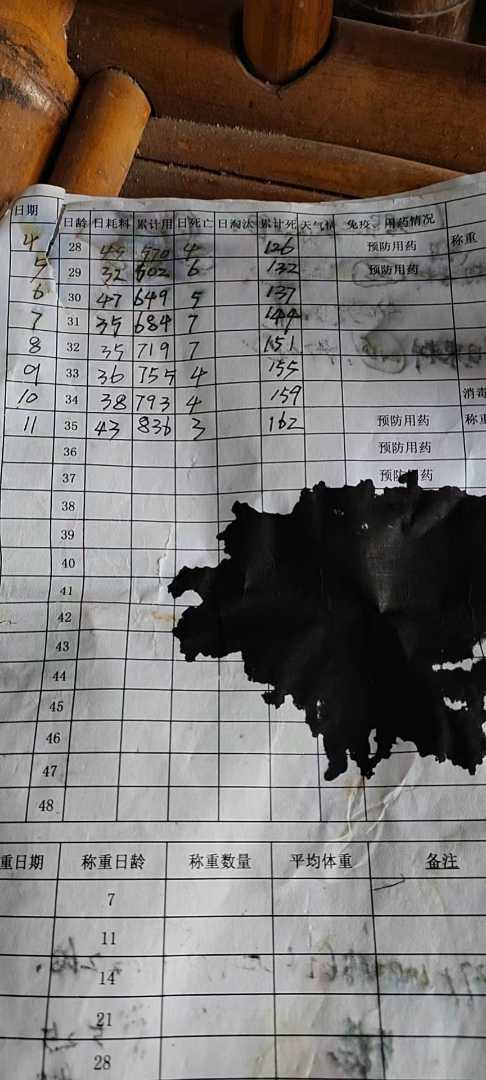 日期 日龄 日耗料 累计用 日死亡 日淘汰 累计死 天气情 免疫、用药情况
4 28 45 570 4 126 预防用药 称重
5 29 32 602 6 132 预防用药
6 30 47 649 5 137
7 31 35 684 7 144
8 32 35 719 7 151
9 33 36 755 4 155
10 34 38 793 4 159 消毒
11 35 43 836 3 162 预防用药 称重
36 预防用药
37 预防用药
38
39
40
41
42
43
44
45
46
47
48
重日期 称重日龄 称重数量 平均体重 备注
7
11
14
21
28